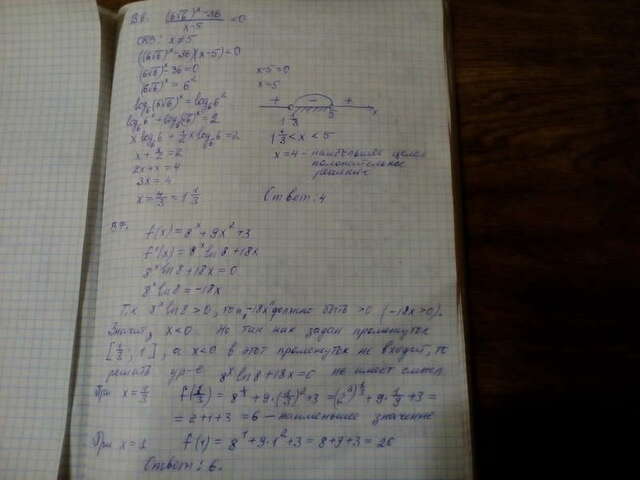 В6. ((6√6)^x - 36)/(x-5) < 0
ОДЗ: x ≠ 5
((6√6)^x - 36)(x-5) = 0
(6√6)^x - 36 = 0   x-5=0
(6√6)^x = 6^2   x=5
log_6(6√6)^x = log_6 6^2   + - +
log_6 6^x + log_6(√6)^x = 2   1 1/3   5   x
x log_6 6 + 1/2 x log_6 6 = 2   1 1/3 < x < 5
x + x/2 = 2   x=4 - наибольшее целое
2x+x = 4   положительное
3x = 4   решение
x = 4/3 = 1 1/3   Ответ: 4
В7.
f(x) = 8^x + 9x^2 + 3
f'(x) = 8^x ln8 + 18x
8^x ln8 + 18x = 0
8^x ln8 = -18x
Т.к. 8^x ln8 > 0, то и "-18x" должно быть > 0 (-18x>0).
Значит, x<0. Но так как задан промежуток
[1/3; 1], а x<0 в этот промежуток не входит, то
решать ур-е 8^x ln8 + 18x = 0 не имеет смысла
При x = 1/3   f(1/3) = 8^(1/3) + 9·(1/3)^2 + 3 = (2^3)^(1/3) + 9·1/9 + 3 =
= 2+1+3 = 6 - наименьшее значение
При x = 1   f(1) = 8^1 + 9·1^2 + 3 = 8+9+3 = 20
Ответ: 6.